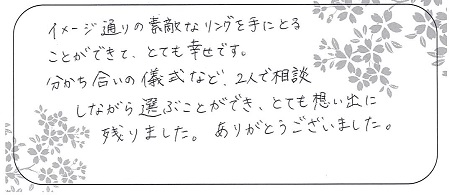 イメージ通りの素敵なリングを手にとる
ことができて、とても幸せです。
分かち合いの儀式など、2人で相談
しながら選ぶことができ、とても想い出に
残りました。ありがとうございました。